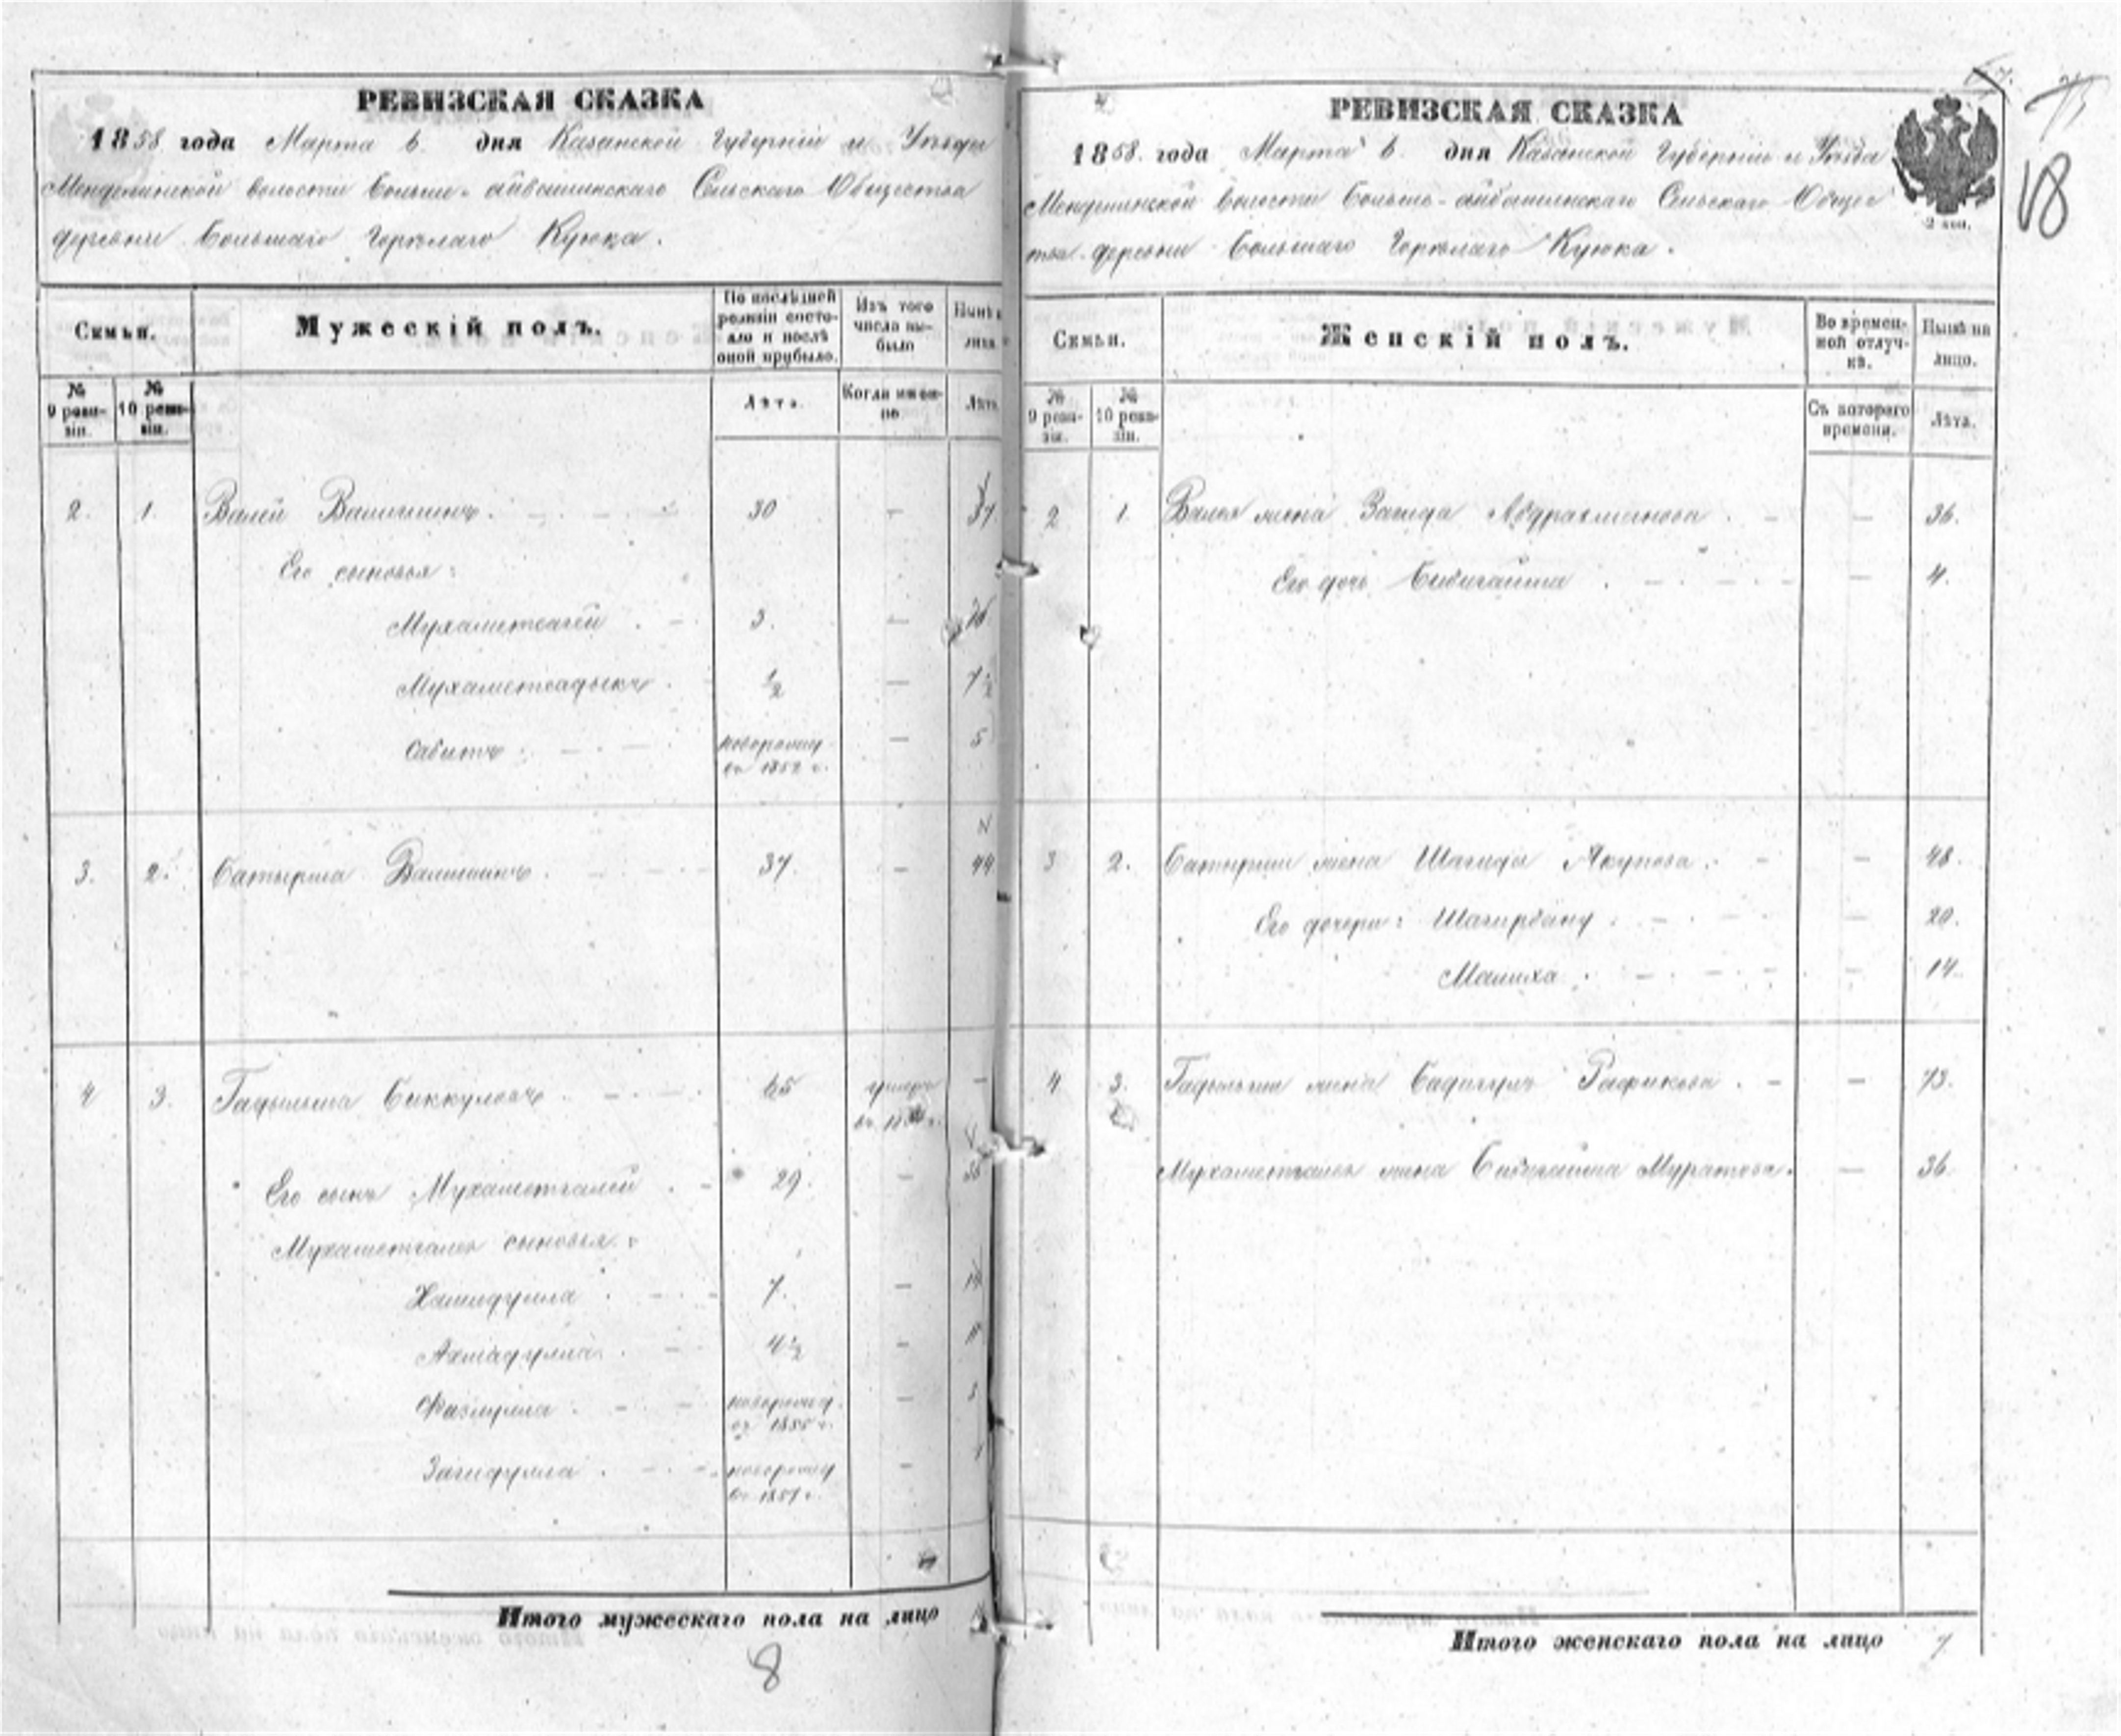 РЕВИЗСКАЯ СКАЗКА
1858 года Марта 6. дня Казанской Губерніи и Уѣзда
волости Больше-
деревни Большаго Горѣлаго Куюка.
Семьи. Мужескій полъ. По послѣдней ревизіи состояло и послѣ оной прибыло. Изъ того числа выбыло Нынѣ на лицо
№ 9 ревизіи. № 10 ревизіи. Лѣта. Когда именно Лѣта.
2. 1. Валей Валишинъ. 30 — 37
Его сыновья:
3. —
Мухаметсадыкъ. ½ — 7½
Сабитъ. новорожд. въ 1852 г. — 5
3. 2. Батырша Валишинъ. 37. — 44
4 3. Биккуловъ. 65 умеръ —
Его сынъ Мухаметгалей 29. — 36
Мухаметгалея сыновья:
Хамидулла 7. — 14
Ахмадулла 4½ — 11
Фазлулла новорожд. въ 1855 г. — 3
Загидулла новорожд. въ 1857 г. — 1
Итого мужескаго пола на лицо
8
РЕВИЗСКАЯ СКАЗКА
1858. года Марта 6. дня Казанской Губерніи и Уѣзда
волости Больше- Сельскаго Общес
тва деревни Большаго Горѣлаго Куюка.
2 коп.
18
Семьи. Женскій полъ. Во временной отлучкѣ. Нынѣ на лицо.
№ 9 ревизіи. № 10 ревизіи. Съ котораго времени. Лѣта.
2 1. Валея жена Загида Абдрахманова. — 36.
Его дочь Бибигайша — 4.
3 2. Батырши жена Шагида Якупова. — 48.
Его дочери: Шагирбану — 20.
Малиха — 14.
4 3. жена Рафикова. — 73.
Мухаметгалея жена Бибигайша Муратова. — 36.
Итого женскаго пола на лицо 7